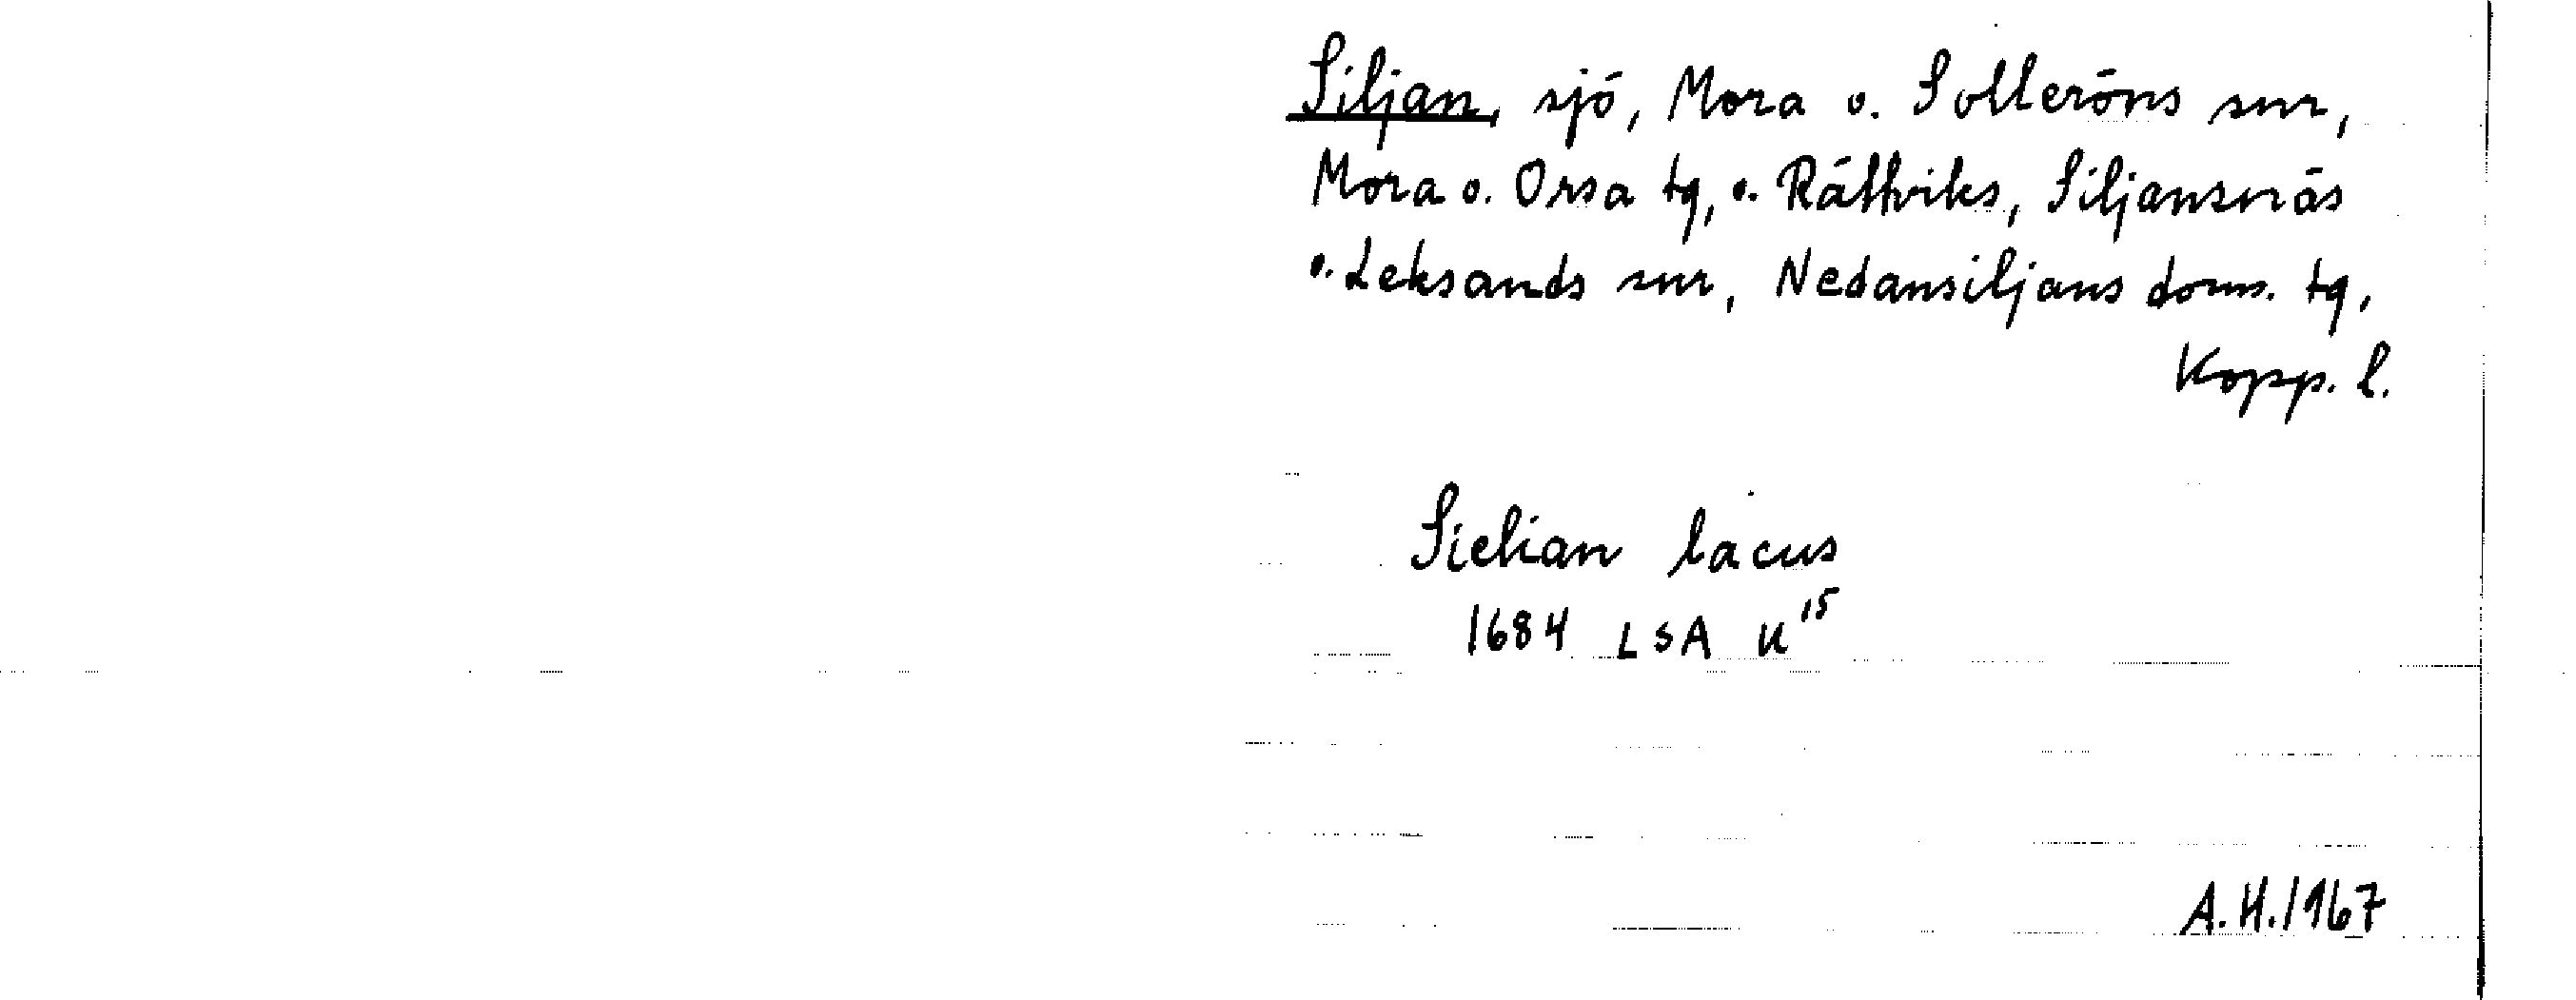 Siljan, sjö, Mora o. Solleröns snr,
Mora o. Orsa tg, o. Rättviks, Siljansnäs
o. Leksands snr, Nedansiljans doms. tg,
Kopp. l.
Sielian lacus
1684 LSA U 15
A.H. 1967